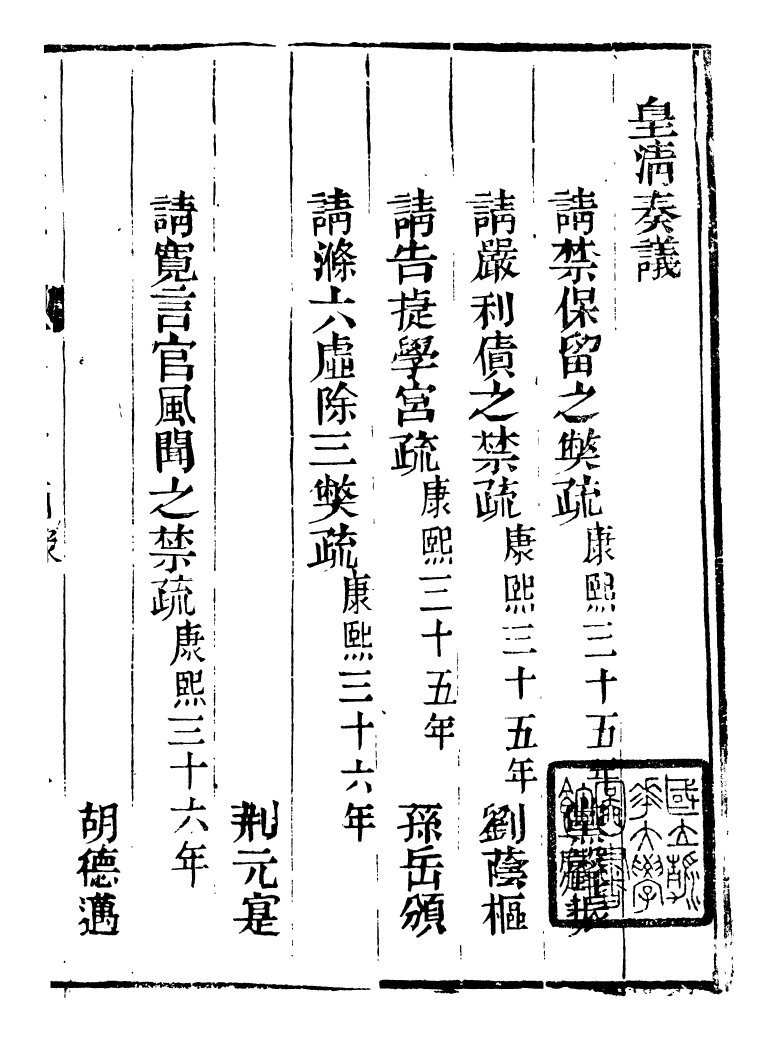 皇淸奏議
請禁保留之獘疏康熙三十五年 振
請嚴利債之禁疏康熙三十五年 劉蔭樞
請告捷學宮疏康熙三十五年 孫岳頒
請滌六虛除三獘疏康熙三十六年
荆元寔
請寬言官風聞之禁疏康熙三十六年
胡德邁
國立淸華大學